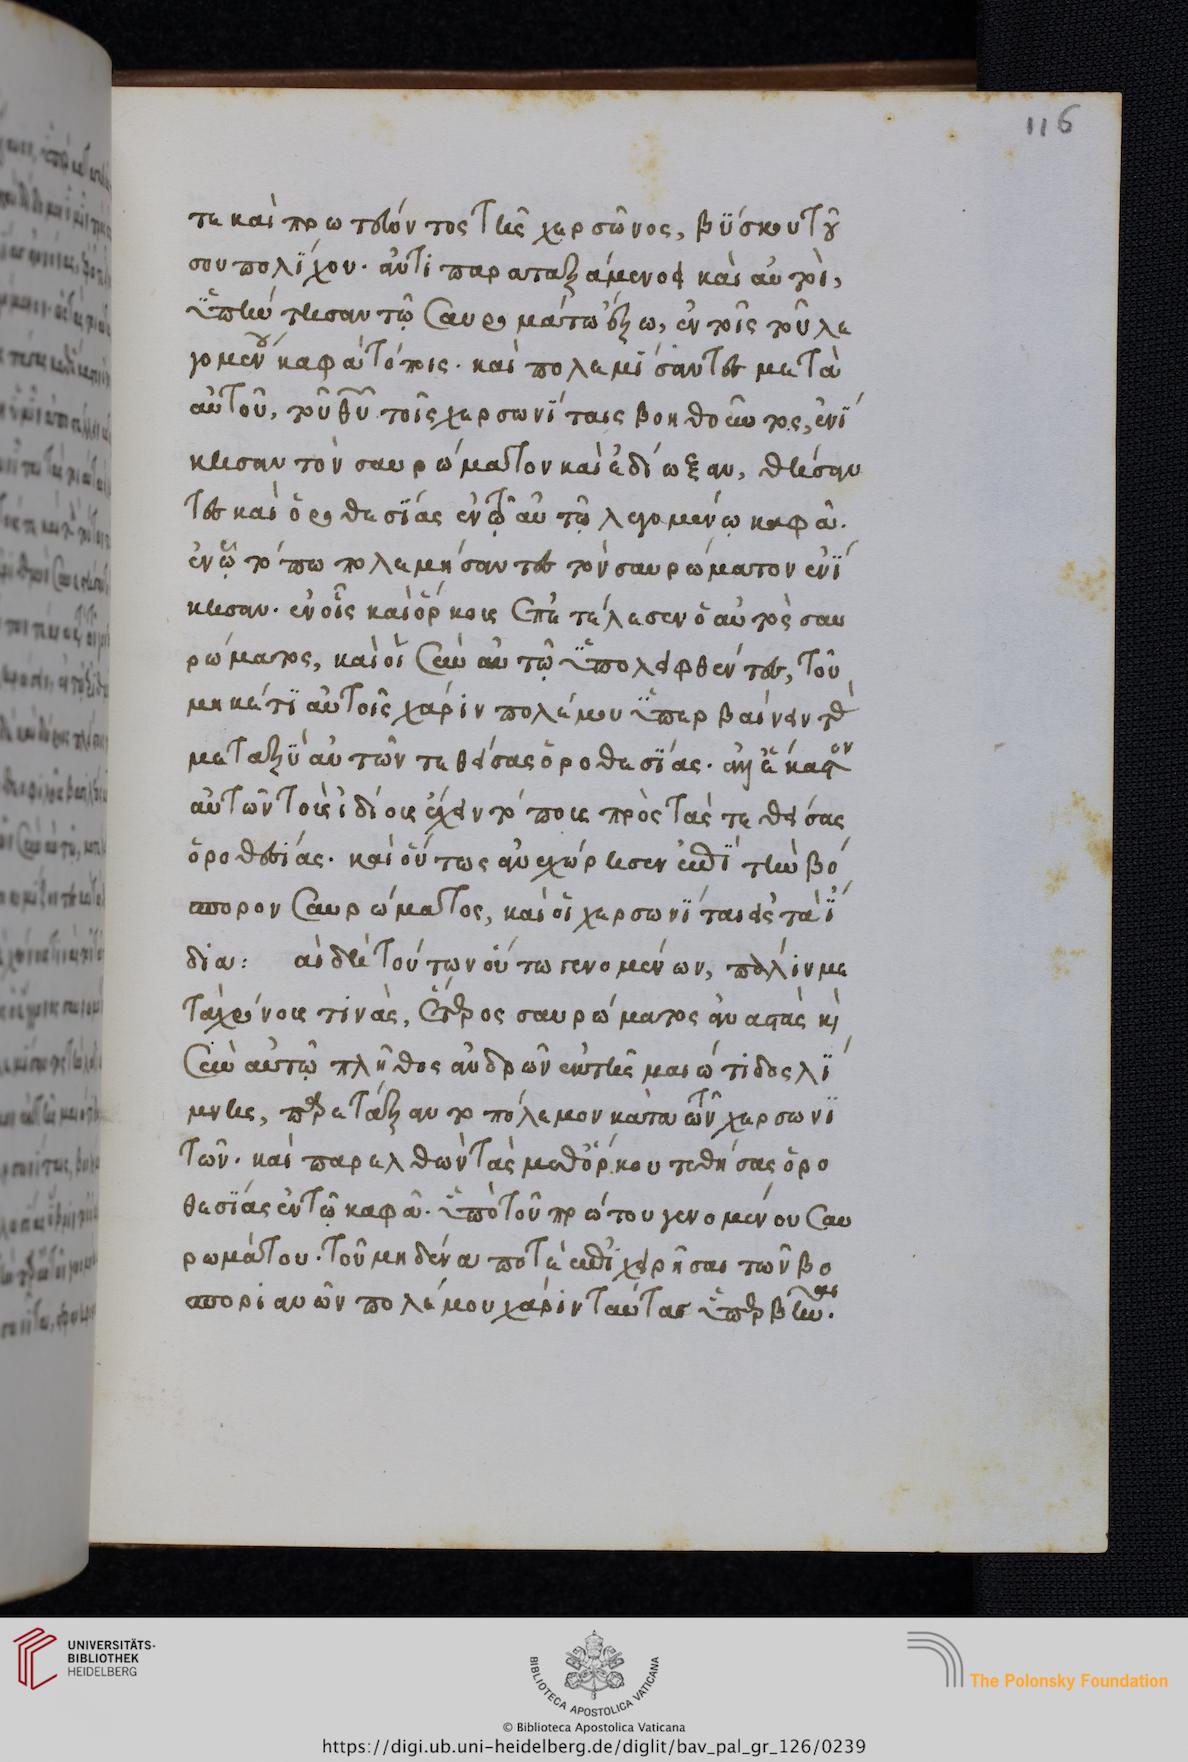 116
τε καὶ πρωτεύοντος τῆς χερσῶνος, βΰσκου τοῦ
σου πολΐχου. ἀντιπαραταξάμενοι καὶ αὐτοὶ,
ὑπήντησαν τῷ Σαυρομάτω ἔξω, ἐν τοῖς τοῦ λε
γομένου καφᾶ τόποις. καὶ πολεμΐσαντες μετὰ
αὐτοῦ, τοῦ θῦ τοῖς χερσωνΐταις βοηθοῦντος, ἐνΐ
κησαν τὸν σαυρώματον καὶ ἐδίωξαν, θήσαν
τες καὶ ὁροθεσΐας ἐν τῷ αὐτῷ λεγομένῳ καφᾶ.
ἐν ᾧ τόπω πολεμήσαντες τὸν σαυρώματον ἐνΐ
κησαν. ἐν οἷς καὶ ὅρκοις ἐπετέλεσεν ὁ αὐτὸς σαυ
ρώματος, καὶ οἱ σὺν αὐτῷ ὑπολειφθέντες, τοῦ
μηκέτϊ αὐτοῖς χάριν πολέμου ὑπερβαίνειν τὰς
μεταξὺ αὐτῶν τεθείσας ὁροθεσΐας. ἀλλ' ἕκαστον
αὐτῶν τοῖς ἰδίοις ἔχειν τόποις πρὸς τὰς τεθείσας
ὁροθεσίας. καὶ οὕτως ἀνεχώρησεν ἐπῒ τὴν βό
σπορον Σαυρώματος, καὶ οἱ χερσωνΐται εἰς τὰ ΐ
δια: αἱ δὴ τούτων οὕτω γενομένων, πάλιν με
τὰ χρόνοις τινὰς, ἕτερος σαυρώματος ἀναστὰς κὶ
σὺν αὐτῷ πλῆθος ἀνδρῶν ἐκ τῆς μαιώτιδος λΐ
μνης, παρετάξαντο πόλεμον κατὰ τῶν χερσωνΐ
τῶν. καὶ παρελθὼν τὰς μεθ' ὅρκου τεθήσας ὁρο
θεσΐας ἐν τῷ καφᾶ. ὑπὸ τοῦ πρώτου γενομένου Σαυ
ρωμάτου. τοῦ μηδένα ποτὲ ἐπιχειρῆσαι τῶν βο
σποριανῶν πολέμου χάριν ταύτας ὑπερβῆναι.
UNIVERSITÄTS-
BIBLIOTHEK
HEIDELBERG
BIBLIOTECA APOSTOLICA VATICANA
The Polonsky Foundation
© Biblioteca Apostolica Vaticana
https://digi.ub.uni-heidelberg.de/diglit/bav_pal_gr_126/0239